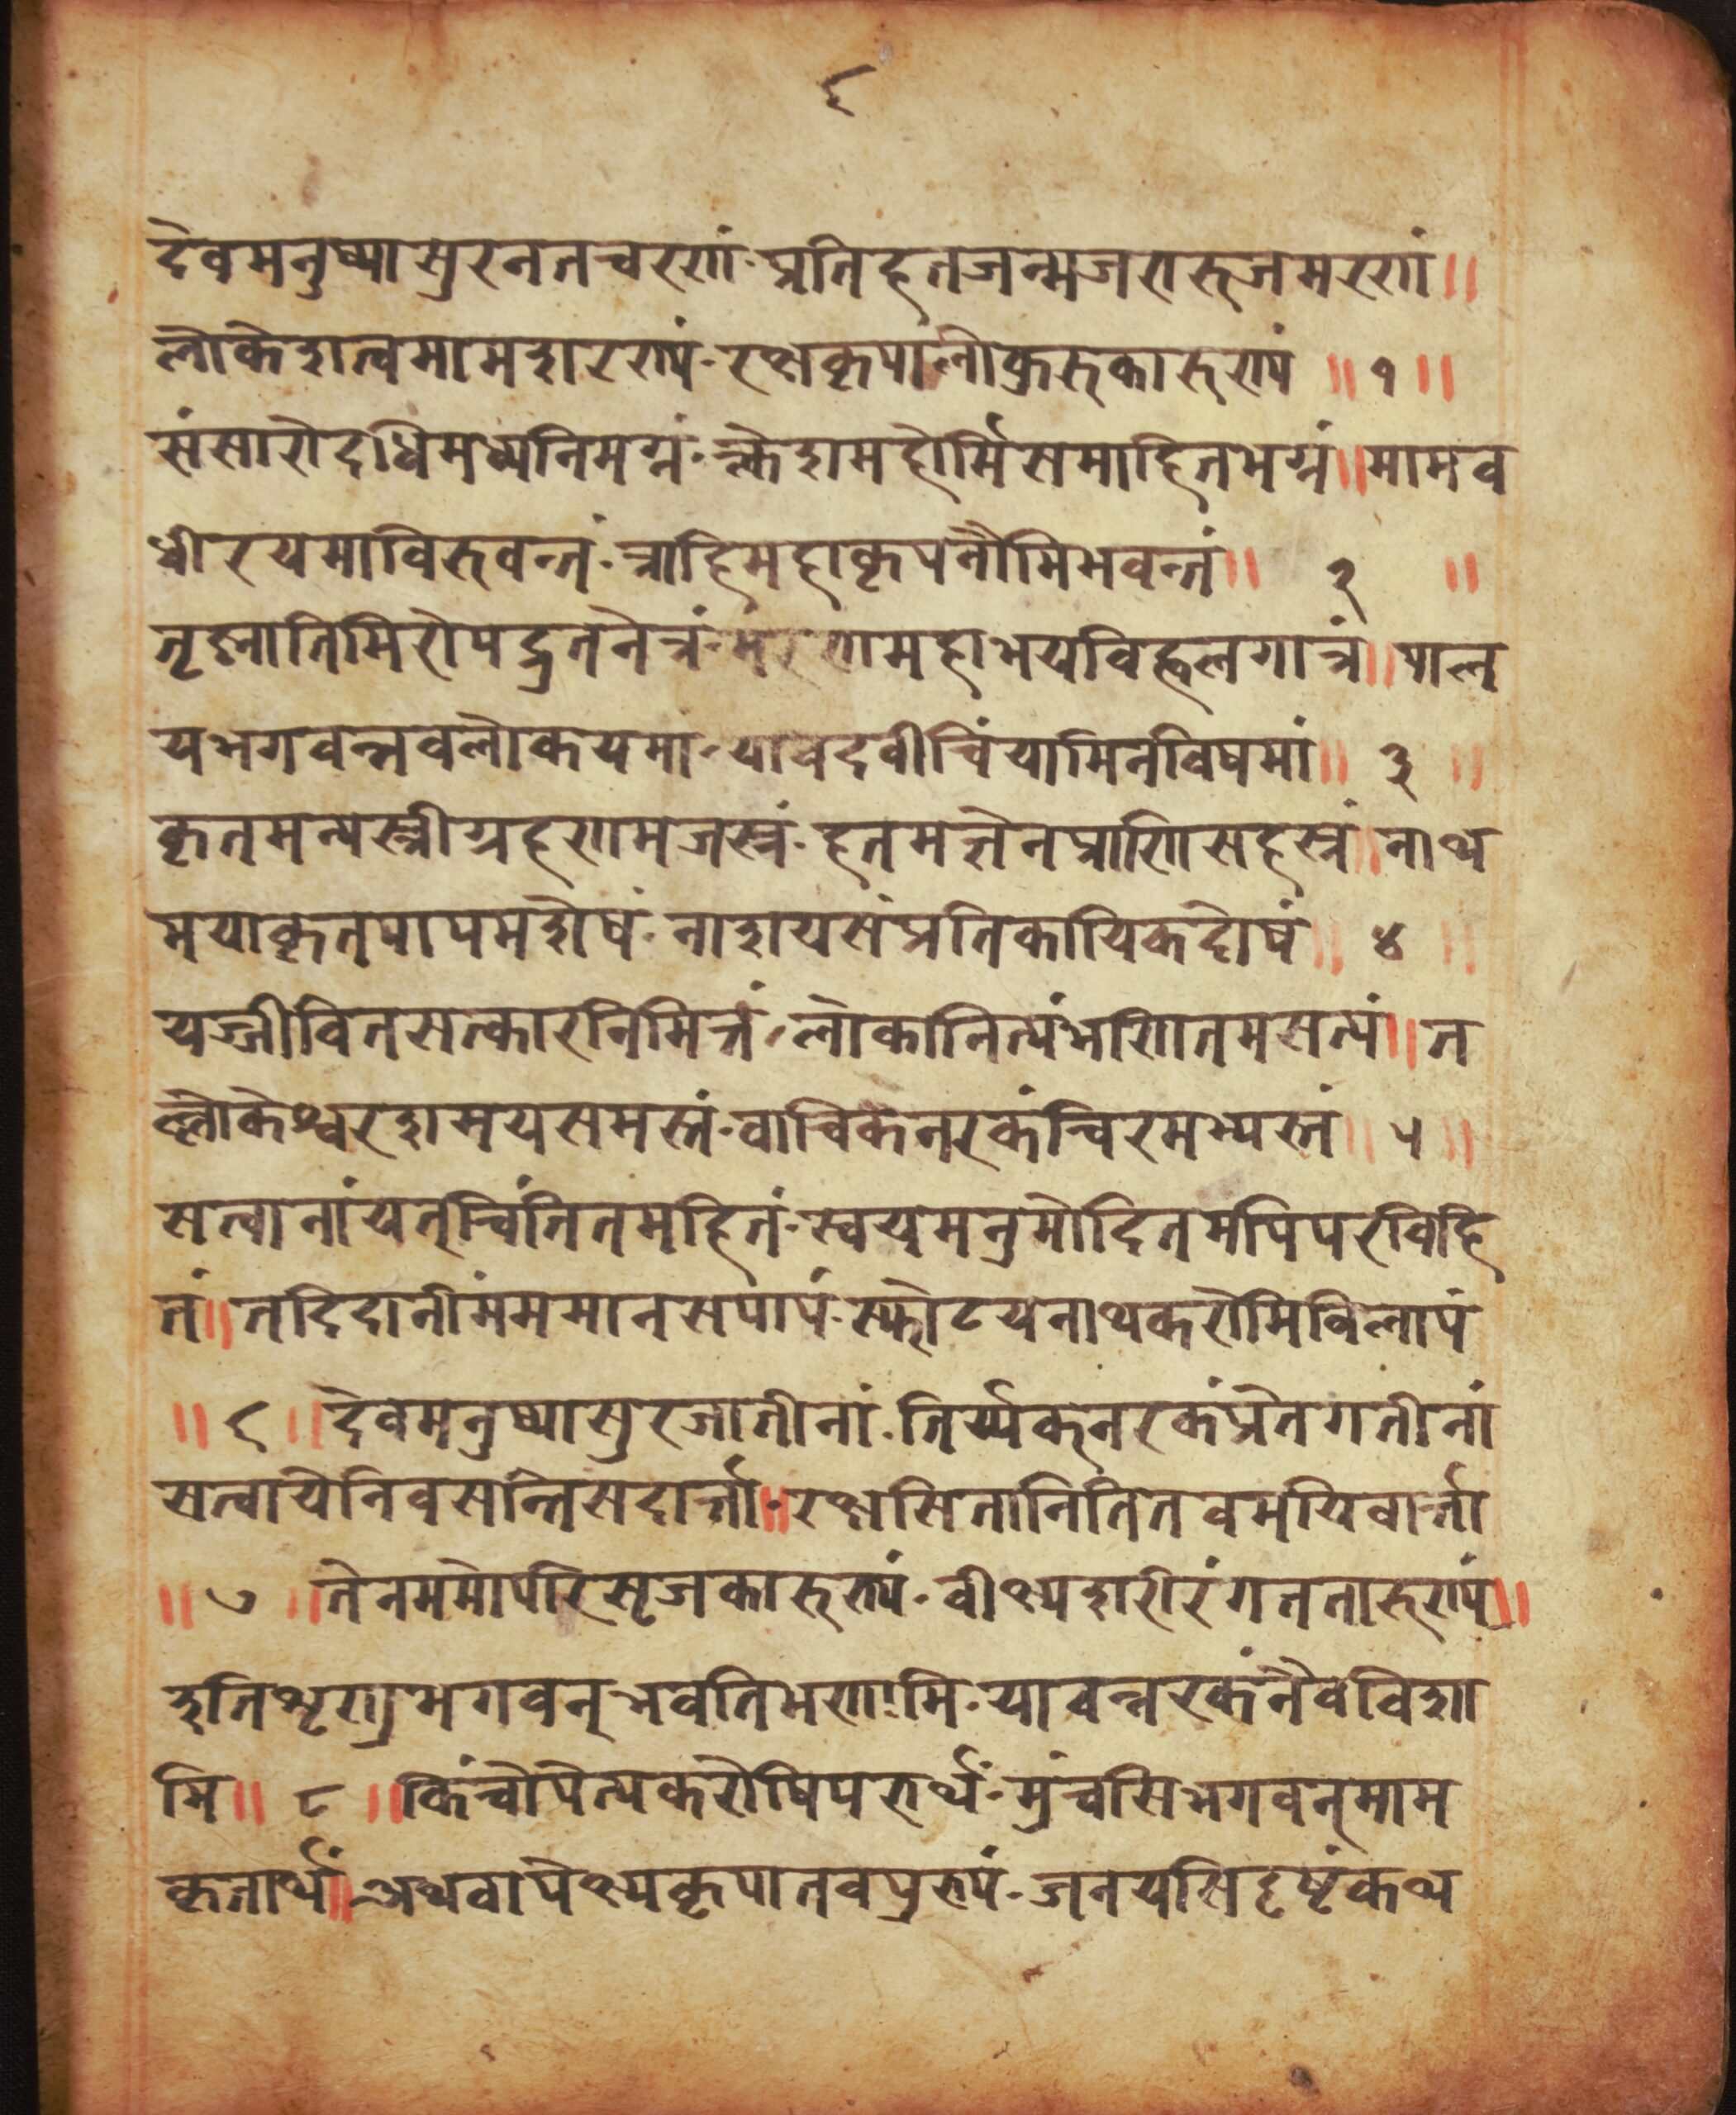 ६
देवमनुष्यासुरनतचरणं - प्रतिहतजन्मजरारुजमरणं ॥
लोकेशत्वमामशरण्यं - रक्षकृपालोकुरुकारुण्यं ॥ १ ॥
संसारोदधिमध्यनिमग्नं - क्लेशमहोर्मिसमाहितभग्नं ॥ मामव
धीरयमाविरुवन्तं - त्राहिमहाकृपनौमिभवन्तं ॥ २ ॥
तृष्नातिमिरोपद्रुतनेत्रं - मरणमहाभयविह्वलगात्रं ॥ पाल
यभगवन्नवलोकयमा - यावदवीचिंयामिनविषमां ॥ ३ ॥
कृतमन्यस्त्रीग्रहणमजस्रं - हतमज्ञेनप्राणिसहस्रं ॥ नाथ
मयाकृतपापमशेषं - नाशयसंप्रतिकायिकदोषं ॥ ४ ॥
यज्जीवितसत्कारनिमित्तं - लोकानित्यंभणितमसत्यं ॥ त
ल्लोकेश्वरशमयसमस्तं - वाचिकनरकंचिरमभ्यस्तं ॥ ५ ॥
सत्वानांयत्चिंतितमहितं - स्वयमनुमोदितमपिपरविहि
तं ॥ तदिदानींमममानसपापं - स्फोटयनाथकरोमिविलापं
॥ ६ ॥ देवमनुष्यासुरजातीनां - तिर्य्यक्नरकंप्रेतगतीनां
सत्वायेनिवसन्तिसदार्त्ता ॥ - रक्षसितानितितवमयिवार्त्ता
॥ ७ ॥ तेनममोपरिसृजकारुण्यं - वीक्ष्यशरीरंगततारुण्यं ॥
इतिशृणुभगवन्भवतिभणामि - यावन्नरकंनैवविशा
मि ॥ ८ ॥ किंचोपेत्यकरोषिपरार्थं - मुंचसिभगवन्माम
कृतार्थं ॥ अथवापेक्ष्यकृपातवपुण्यं - जनयसिदृष्टंकथ